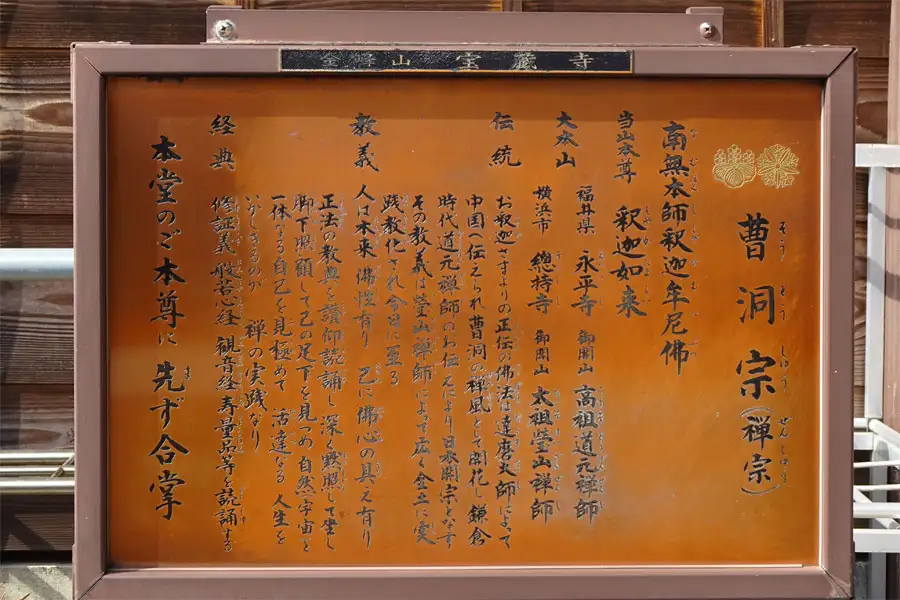 寺蔵宝 山
曹洞宗(禅宗)
そうとうしゅう ぜんしゅう
南無本師釈迦牟尼佛
当山本尊 釈迦如来
大本山 福井県 永平寺 御開山 高祖道元禅師
横浜市 總持寺 御開山 太祖瑩山禅師
伝統 お釈迦さまよりの正伝の佛法は達磨大師によって
中国へ伝えられ曹洞の禅風として開花し鎌倉
時代道元禅師のお伝えにより日本開宗となす
その教義は瑩山禅師によって広く全土に実
践教化され今日に至る
教義 人は本来佛性有り 己に佛心の具え有り
正法の教典を讃仰読誦し深く黙照して坐し
脚下照顧して己の足下を見つめ自然宇宙と
一体なる自己を見極めて 活達なる人生を
いかしきるのが 禅の実践なり
経典 修証義 般若心経 観音経 寿量品等を読誦する
本堂のご本尊に 先ず合掌